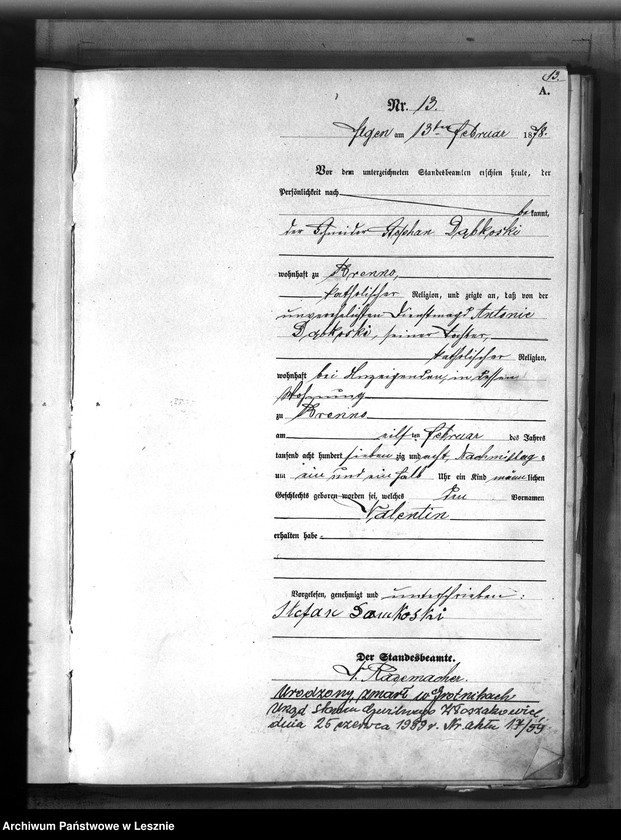 13.
A.
Nr. 13.
am 13ten Februar 1878.
Vor dem unterzeichneten Standesbeamten erschien heute, der
Persönlichkeit nach
bekannt,
der Schneider Stephan Dąbkoski
wohnhaft zu Brenno,
katholischer Religion, und zeigte an, daß von der
unverehelichten Dienstmagd Antonie
Dąbkoski, seiner Tochter,
katholischer Religion,
wohnhaft bei Anzeigenden, in dessen
Wohnung
zu Brenno
am eilften Februar des Jahres
tausend acht hundert siebenzig und acht, Nachmittags
um ein und ein halb Uhr ein Kind männlichen
Geschlechts geboren worden sei, welches den Vornamen
Valentin
erhalten habe.
Vorgelesen, genehmigt und unterschrieben:
Stefan Domkoski
Der Standesbeamte.
Rademacher.
Urodzony zmarł w Grotnikach
Urząd stanu cywilnego Włoszakowice
dnia 25 czerwca 1959 r. Nr aktu 17/59
Archiwum Państwowe w Lesznie